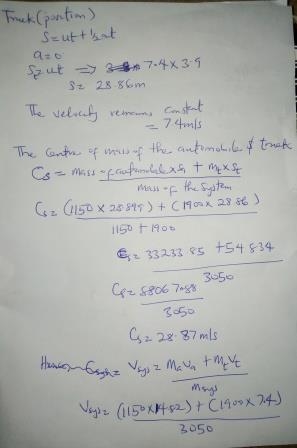 Truck (position)
S = ut + ½at
a = 0
S = ut ⇒ 7.4 x 3.9
S = 28.86m
The velocity remains constant
= 7.4m/s
The centre of mass of the automobile & truck
Cs = mass of automobile x Sa + Mt x St
mass of the System
Cs = (1150 x 28.899) + (1900 x 28.86)
1150 + 1900
= 33233.85 + 54834
3050
Cs = 88067.88
3050
Cs = 28.87 m/s
Vsys = MaVa + MtVt
Msys
Vsys = (1150 x 14.82) + (1900 x 7.4)
3050